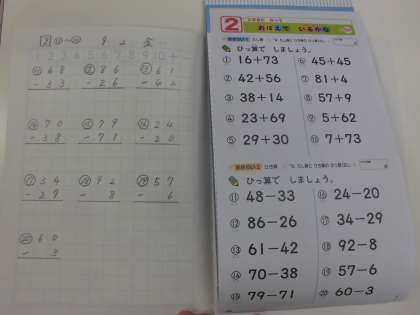 2 ⑪~⑳ 9 2
⑪ 68 ⑫ 86 ⑬ 61
- 33 - 26 - 42
⑭ 70 ⑮ 79 ⑯ 24
- 38 - 71 - 20
⑰ 34 ⑱ 92 ⑲ 57
- 29 - 8 - 6
⑳ 60
- 3
2
おぼえて いるかな
ひっ算で しましょう。
① 16+73 ⑥ 45+45
② 42+56 ⑦ 81+4
③ 38+14 ⑧ 57+9
④ 23+69 ⑨ 5+62
⑤ 29+30 ⑩ 7+73
ひっ算で しましょう。
⑪ 48-33 ⑯ 24-20
⑫ 86-26 ⑰ 34-29
⑬ 61-42 ⑱ 92-8
⑭ 70-38 ⑲ 57-6
⑮ 79-71 ⑳ 60-3